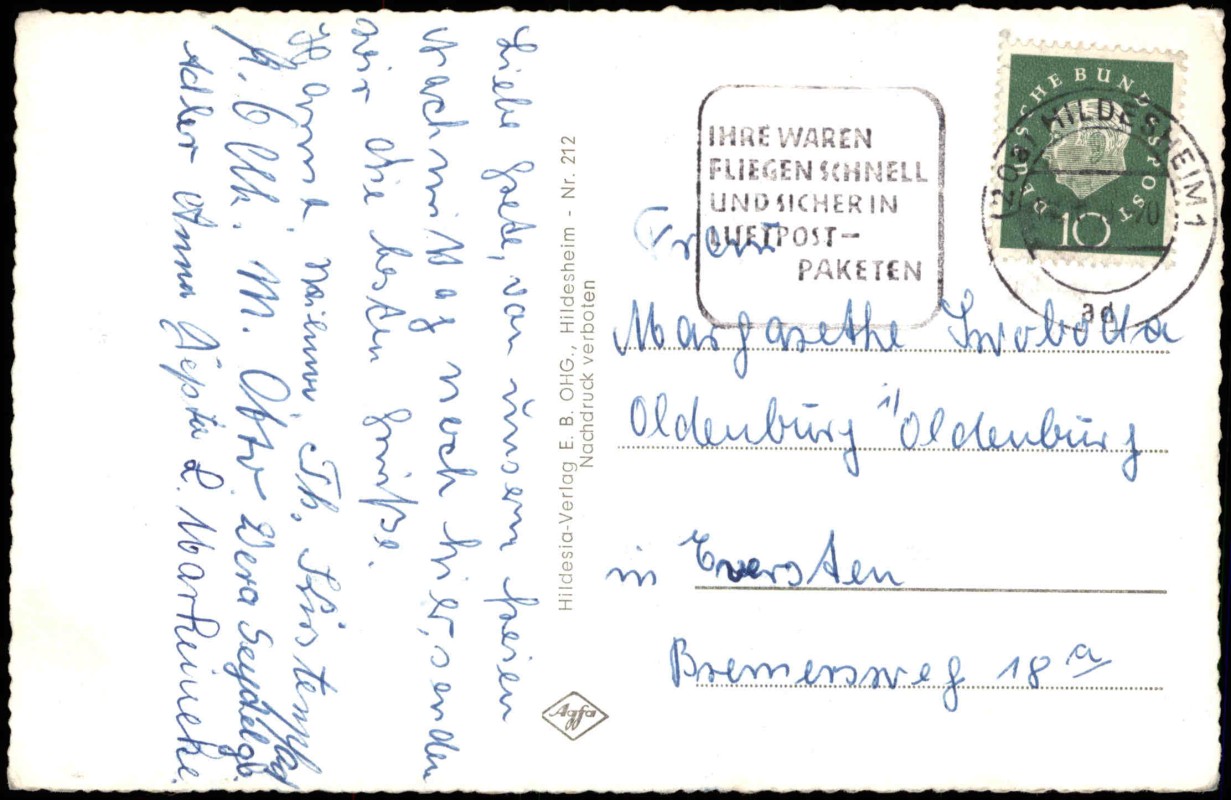 Liebe Grete, von unsern freien
Nachmittag noch hier, senden
wir die besten Grüße.
Th.
M. Otto Vera
Adler Anna L. Marheineke.
Hildesia-Verlag E. B. OHG., Hildesheim - Nr. 212
Nachdruck verboten
Agfa
IHRE WAREN
FLIEGEN SCHNELL
UND SICHER IN
LUFTPOST-
PAKETEN
DEUTSCHE BUNDESPOST
10
(20a) HILDESHEIM 1
ad
Frau
Margarethe Swobotta
Oldenburg i/Oldenburg
in Eversten
Bremersweg 18 a